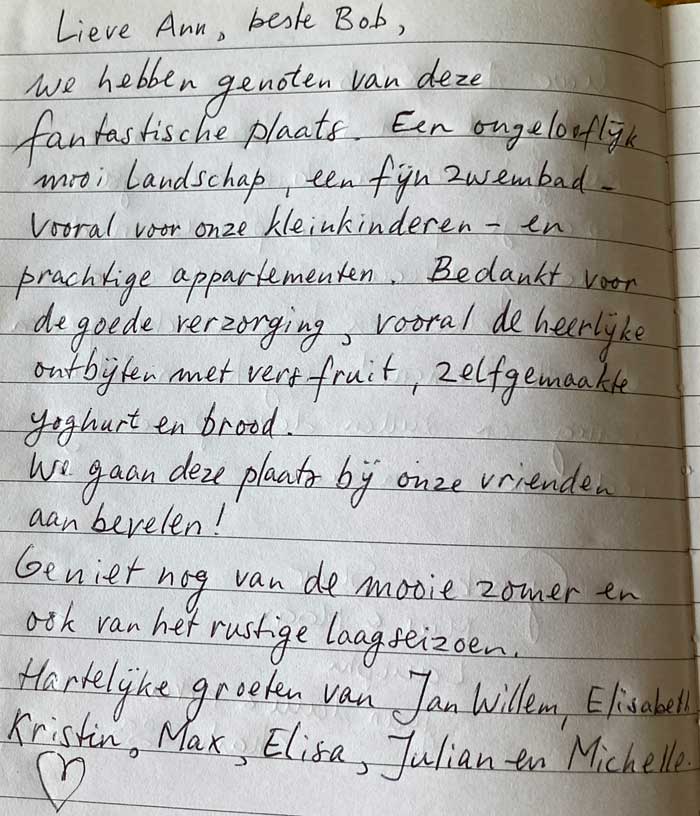 Lieve Ann, beste Bob,
We hebben genoten van deze
fantastische plaats. Een ongelooflijk
mooi landschap, een fijn zwembad -
vooral voor onze kleinkinderen - en
prachtige appartementen. Bedankt voor
de goede verzorging, vooral de heerlijke
ontbijten met vers fruit, zelfgemaakte
yoghurt en brood.
We gaan deze plaats bij onze vrienden
aan bevelen!
Geniet nog van de mooie zomer en
ook van het rustige laagseizoen.
Hartelijke groeten van Jan Willem, Elisabeth
Kristin, Max, Elisa, Julian en Michelle.